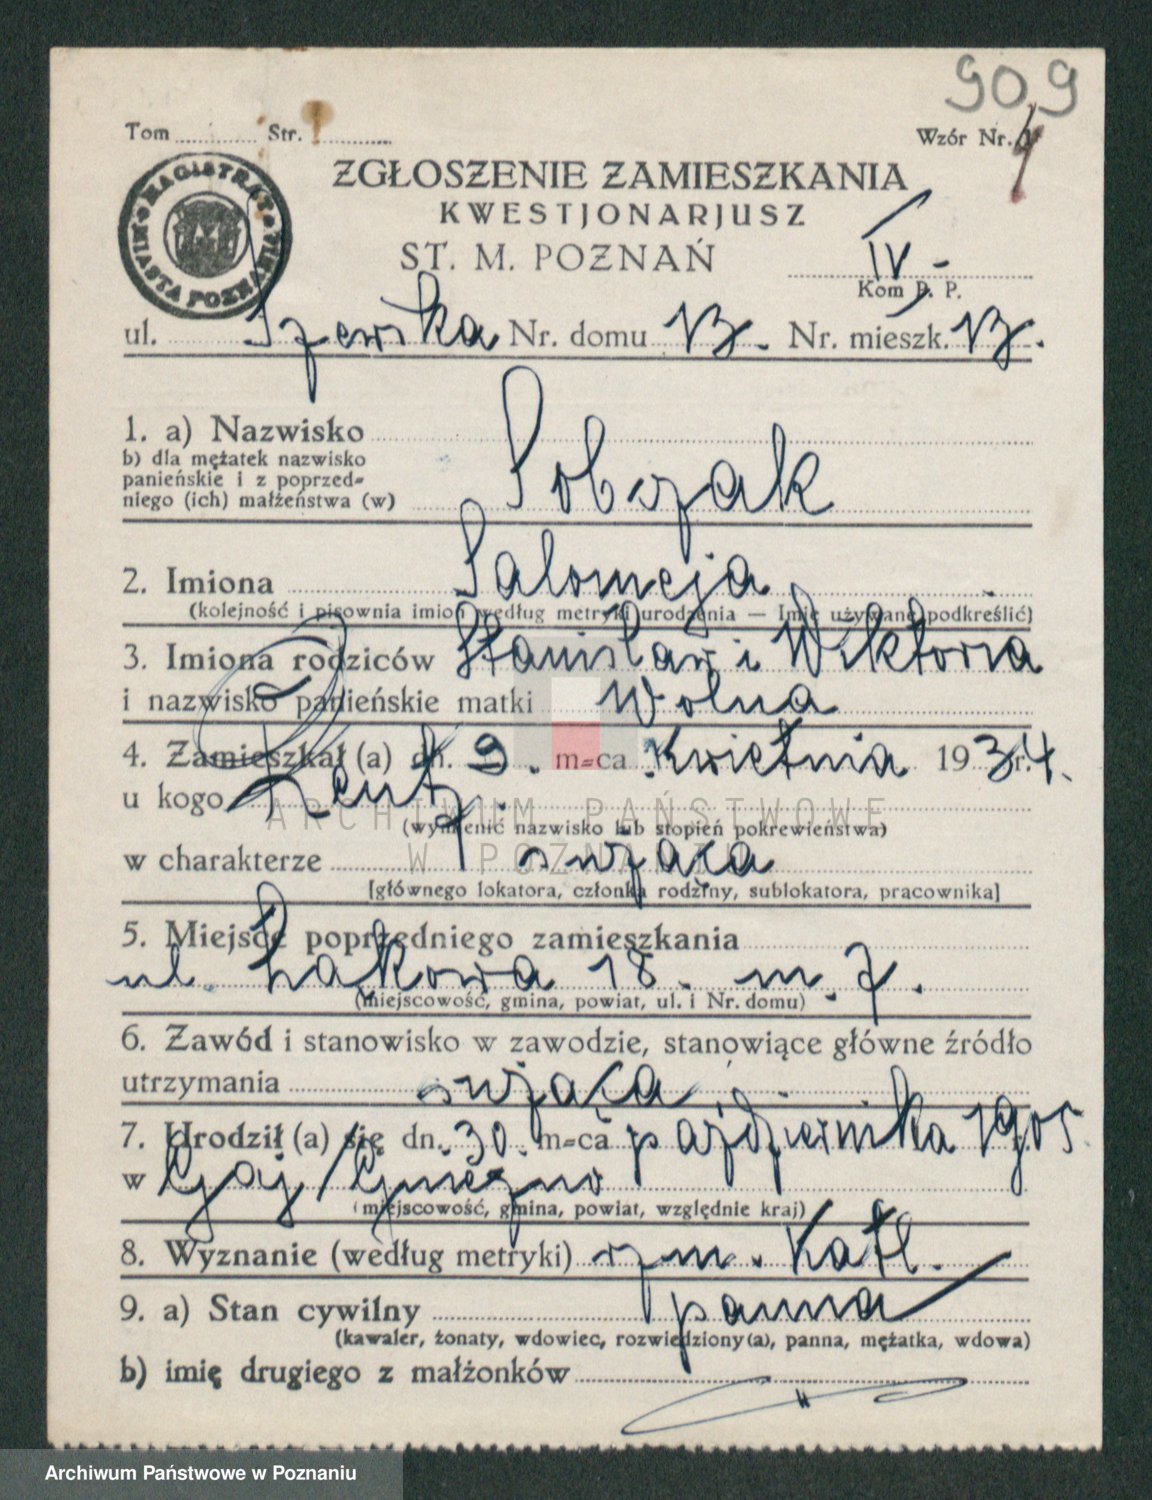 909
Tom Str. Wzór Nr.
MAGISTRAT MIASTA POZNANIA
ZGŁOSZENIE ZAMIESZKANIA
KWESTJONARJUSZ
ST. M. POZNAŃ IV -
Kom P. P.
ul. Szewska Nr. domu 13. Nr. mieszk. 13.
1. a) Nazwisko
b) dla mężatek nazwisko
panieńskie i z poprzed=
niego (ich) małżeństwa (w) Sobczak
2. Imiona Salomeja
(kolejność i pisownia imion według metryki urodzenia — Imię używane podkreślić)
3. Imiona rodziców Stanisław i Wiktoria
i nazwisko panieńskie matki Wolna
4. Zamieszkał (a) dn. 9. m=ca Kwietnia 1934 r.
u kogo
(wymienić nazwisko lub stopień pokrewieństwa)
w charakterze służąca
[głównego lokatora, członka rodziny, sublokatora, pracownika]
ARCHIWUM PAŃSTWOWE
W POZNANIU
5. Miejsce poprzedniego zamieszkania
ul. Łąkowa 18. m. 7.
(miejscowość, gmina, powiat, ul. i Nr. domu)
6. Zawód i stanowisko w zawodzie, stanowiące główne źródło
utrzymania służąca
7. Urodził (a) się dn. 30. m=ca października 1905.
w Gaj / Gniezno
(miejscowość, gmina, powiat, względnie kraj)
8. Wyznanie (według metryki) rzm. Katl.
9. a) Stan cywilny panna
(kawaler, żonaty, wdowiec, rozwiedziony(a), panna, mężatka, wdowa)
b) imię drugiego z małżonków
Archiwum Państwowe w Poznaniu